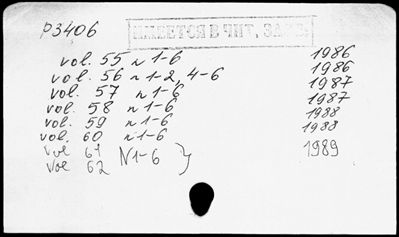 P3406
ИМЕЕТСЯ В ЧИТ. ЗАЛЕ
vol. 55 n 1-6 1986
vol. 56 n 1-2, 4-6 1986
vol. 57 n 1-6 1987
vol. 58 n 1-6 1987
vol. 59 n 1-6 1988
vol. 60 n 1-6 1988
vol 61 N1-6 } 1989
vol 62